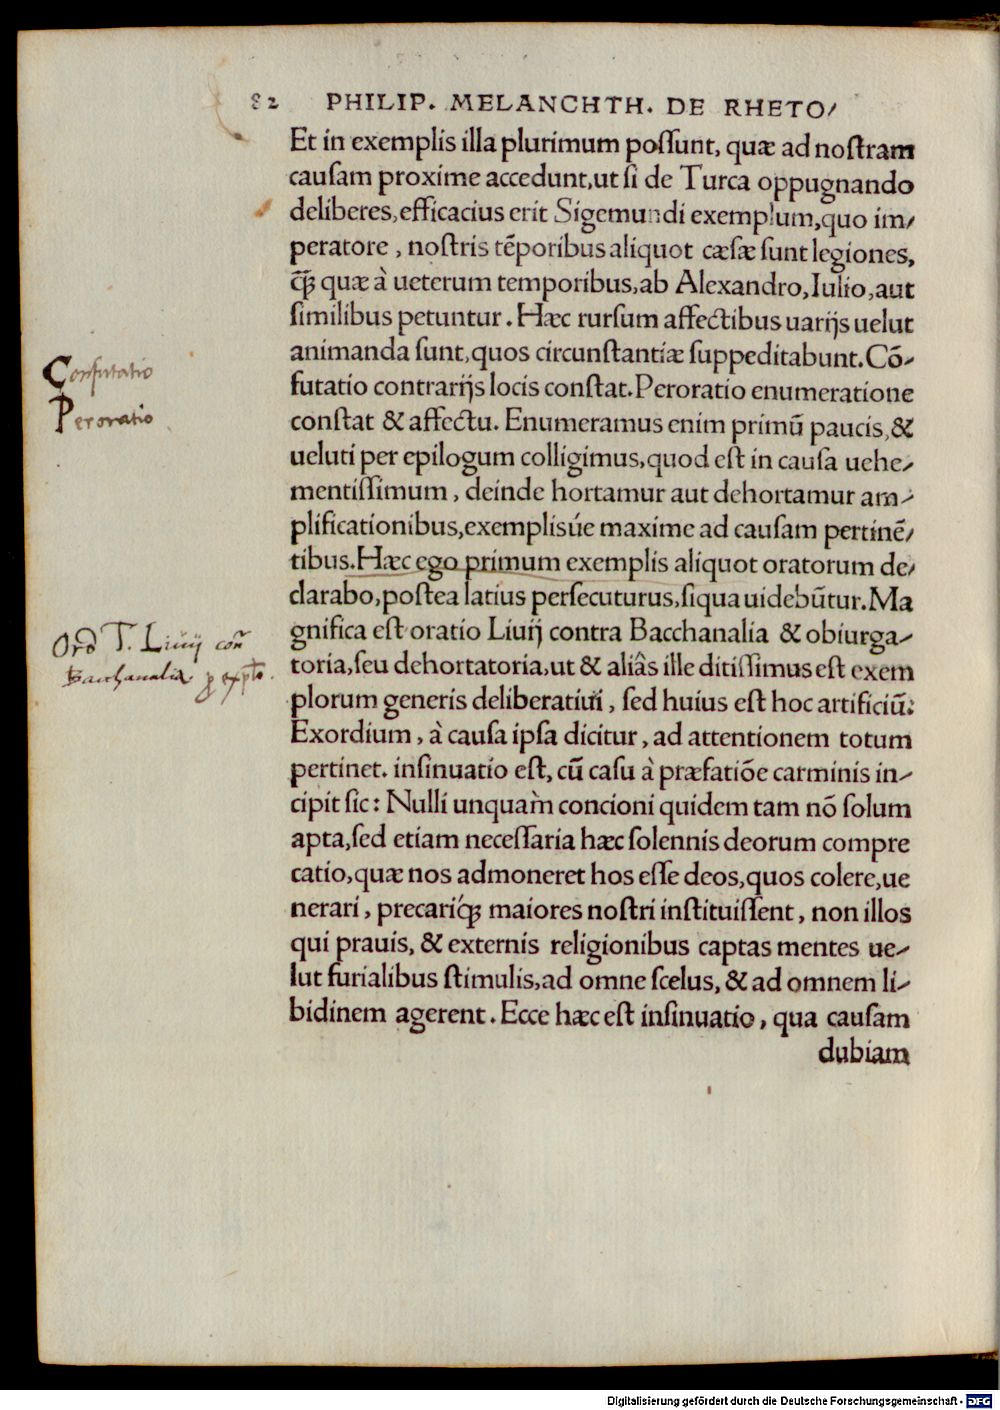 82 PHILIP. MELANCHTH. DE RHETO/
Et in exemplis illa plurimum poſſunt, quæ ad noſtram
cauſam proxime accedunt,ut ſi de Turca oppugnando
deliberes,efficacius erit Sigemundi exemplum,quo im/
peratore , noſtris tẽporibus aliquot cæſæ ſunt legiones,
q̃ꝗ quæ à ueterum temporibus,ab Alexandro,Iulio,aut
ſimilibus petuntur . Hæc rurſum affectibus uarijs uelut
animanda ſunt,quos circunſtantiæ ſuppeditabunt.Cõ/
futatio contrarijs locis conſtat.Peroratio enumeratione
conſtat & affectu. Enumeramus enim primũ paucis,&
ueluti per epilogum colligimus,quod eſt in cauſa uehe/
mentiſſimum , deinde hortamur aut dehortamur am/
plificationibus,exemplisúe maxime ad cauſam pertinẽ/
tibus.Hæc ego primum exemplis aliquot oratorum de/
clarabo,poſtea latius perſecuturus,ſiqua uidebũtur.Ma
gnifica eſt oratio Liuij contra Bacchanalia & obiurga/
toria,ſeu dehortatoria,ut & aliâs ille ditiſſimus eſt exem
plorum generis deliberatiui , ſed huius eſt hoc artificiũ:
Exordium , à cauſa ipſa dicitur , ad attentionem totum
pertinet. inſinuatio eſt, cũ caſu à præfatiõe carminis in/
cipit ſic: Nulli unquam concioni quidem tam nõ ſolum
apta,ſed etiam neceſſaria hæc ſolennis deorum compre
catio,quæ nos admoneret hos eſſe deos,quos colere,ue
nerari , precariq́ꝫ maiores noſtri inſtituiſſent , non illos
qui prauis, & externis religionibus captas mentes ue/
lut furialibus ſtimulis,ad omne ſcelus, & ad omnem li/
bidinem agerent . Ecce hæc eſt inſinuatio , qua cauſam
dubiam
Confutatio
Peroratio
Orõ T. Liuij con̄
Bacchanalia ꝓ exp̄lo.
Digitalisierung gefördert durch die Deutsche Forschungsgemeinschaft - DFG